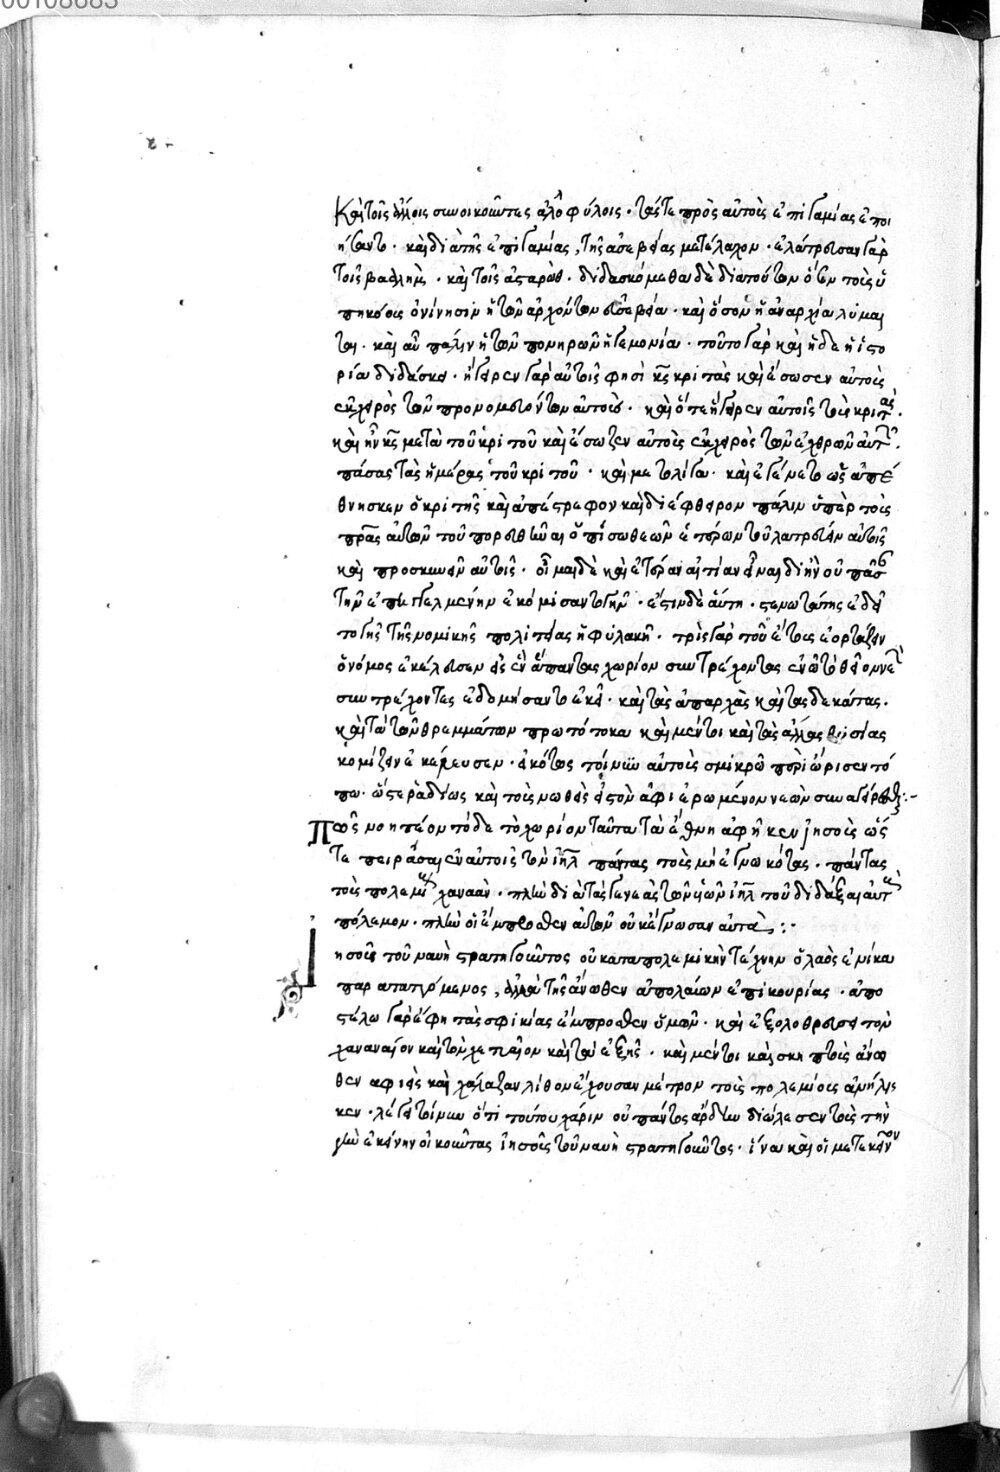 00108683
καὶ τοῖς ἄλλοις συνοικοῦντες ἀλλοφύλοις. τάς τε πρὸς αὐτοὺς ἐπιγαμίας ἐποι
ήσαντο. καὶ διὰ τῆς ἐπιγαμίας, τῆς ἀσεβείας μετέλαχον. ἐλάτρευσαν γὰρ
τοῖς βααλεὶμ. καὶ τοῖς ἀσταρώθ. διδασκόμεθα δὲ διὰ τούτων ὅσον τοὺς ὑ
πηκόους ὀνίνησιν ἡ τῶν ἀρχόντων εὐσέβεια. καὶ ὅσον ἡ ἀναρχία λυμαί
νεται. καὶ αὖ πάλιν ἡ τῶν πονηρῶν ἡγεμονία. τοῦτο γὰρ καὶ ἥδε ἡ ἱστο
ρία διδάσκει. ἤγειρεν γὰρ αὐτοῖς φησὶ κς κριτὰς καὶ ἔσωσεν αὐτοὺς
ἐκ χειρὸς τῶν προνομευόντων αὐτούς. καὶ ὅτε ἤγειρεν αὐτοῖς τοὺς κριτάς.
καὶ ἦν κς μετὰ τοῦ κριτοῦ καὶ ἔσωζεν αὐτοὺς ἐκ χειρὸς τῶν ἐχθρῶν αὐτῶν.
πάσας τὰς ἡμέρας τοῦ κριτοῦ. καὶ μετ ὀλίγα. καὶ ἐγένετο ὡς ἀπέ
θνησκεν ὁ κριτὴς καὶ ἀπέστρεφον καὶ διέφθειρον πάλιν ὑπὲρ τοὺς
πρας αὐτῶν τοῦ πορευθῆναι ὀπίσω θεῶν ἑτέρων τοῦ λατρεύειν αὐτοῖς
καὶ προσκυνεῖν αὐτοῖς. οἶμαι δὲ καὶ ἑτέραν αἰτίαν εἶναι δι ἣν οὐ πᾶσαν
τὴν ἐπηγγελμένην ἐκομίσαντο γῆν. ἔστιν δὲ αὕτη. στενωτάτης ἐδεῖ
το γῆς τῆς νομικῆς πολιτείας ἡ φυλακή. τρὶς γὰρ τοῦ ἔτους ἑορτάζειν
ὁ νόμος ἐκέλευσεν εἰς ἓν ἅπαντας χωρίον συντρέχοντας ἐν ᾧ τὸ θεῖον
συντρέχοντες ἐδομήσαντο ἐκεῖ. καὶ τὰς ἀπαρχὰς καὶ τὰς δεκάτας.
καὶ τὰ τῶν θρεμμάτων πρωτότοκα καὶ μέντοι καὶ τὰς ἄλλας θυσίας
κομίζειν ἐκέλευσεν. εἰκότως τοίνυν αὐτοὺς σμικρῷ περιώρισεν τό
πω. ὥστε ῥαδίως καὶ τοὺς νωθεῖς εἰς τὸν ἀφιερωμένον νεὼν συναγείρεσθαι:-
Πῶς νοητέον τόδε τὸ χωρίον ταῦτα τὰ ἔθνη ἀφῆκεν ἰησοῦς ὥς
τε πειράσαι ἐν αὐτοῖς τὸν ιηλ πάντας τοὺς μὴ ἐγνωκότας. πάντας
τοὺς πολέμους χαναάν. πλὴν διὰ τὰς γενεὰς τῶν υἱῶν ιηλ τοῦ διδάξαι αὐτοὺς
πόλεμον. πλὴν οἱ ἔμπροσθεν αὐτῶν οὐκ ἔγνωσαν αὐτά:-
Ἰησοῦ τοῦ ναυῆ στρατηγοῦντος οὐ κατὰ πολεμικὴν τέχνην ὁ λαὸς ἐνίκα
παραταττόμενος, ἀλλὰ τῆς ἄνωθεν ἀπολαύων ἐπικουρίας. ἀπο
στελῶ γὰρ ἔφη τὰς σφικίας ἔμπροσθεν ὑμῶν. καὶ ἐξολοθρεύσει τὸν
χαναναῖον καὶ τὸν χετταῖον καὶ τοὺς ἑξῆς. καὶ μέντοι καὶ σκηπτοὺς ἄνω
θεν ἀφιεὶς καὶ χάλαζαν λίθον ἕλκουσαν μέτρον τοὺς πολεμίους ἀνήλις
κεν. λέγει τοίνυν ὅτι τούτου χάριν οὐ πάντας ἄρδην διώλεσεν τοὺς τὴν
γῆν ἐκείνην οἰκοῦντας ἰησοῦς τοῦ ναυῆ στρατηγοῦντος. ἵνα καὶ οἱ μετ ἐκεῖνον